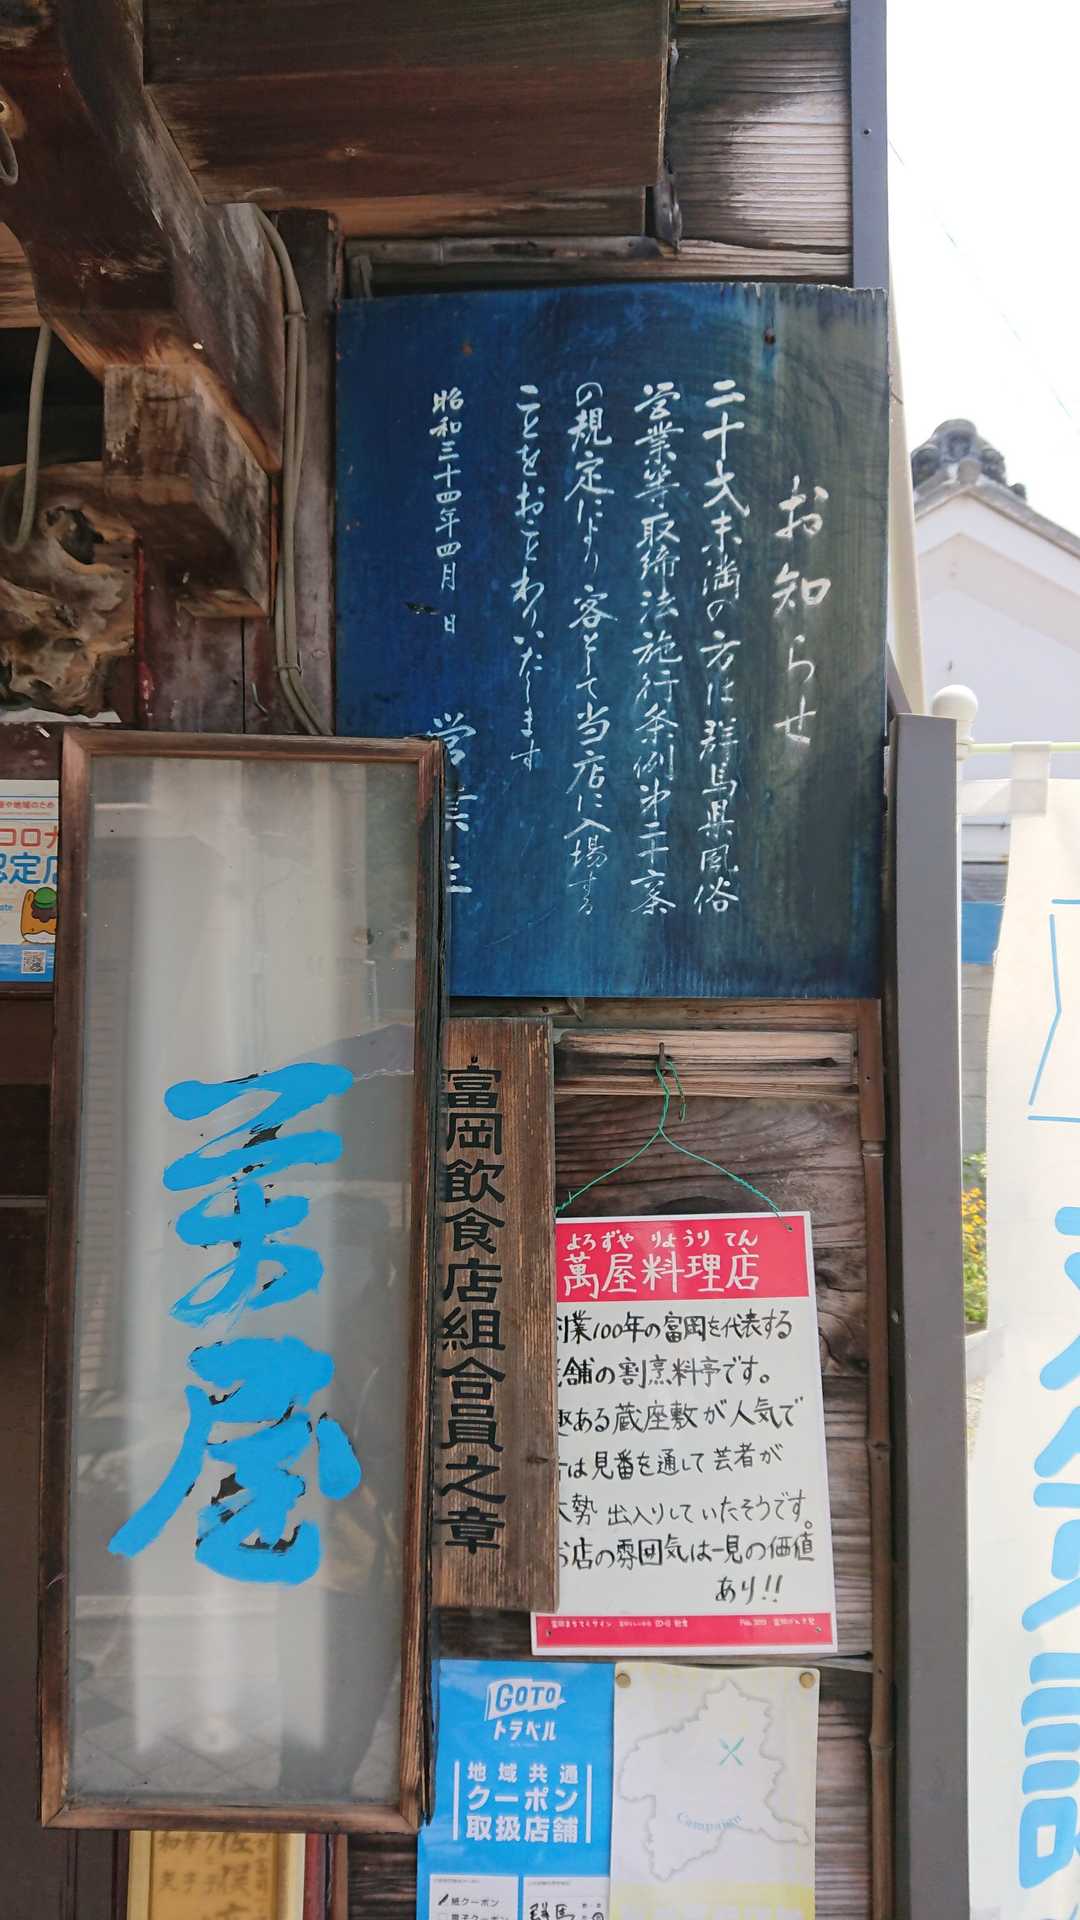 お知らせ
二十才未満の方は群馬県風俗
営業等取締法施行条例第二十六条
の規定により客として当店に入場する
ことをおことわりいたします
昭和三十四年四月 日
営業主
コロナ
認定店
萬屋
富岡飲食店組合員之章
よろずや りょうり てん
萬屋料理店
創業100年の富岡を代表する
老舗の割烹料亭です。
趣ある蔵座敷が人気で
は見番を通して芸者が
大勢出入りしていたそうです。
お店の雰囲気は一見の価値
あり!!
GOTO
トラベル
地域共通
クーポン
取扱店舗
紙クーポン
電子クーポン
群馬
Campaign